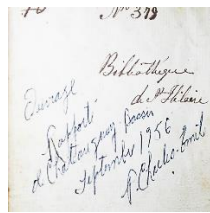 No 348
Bibliothèque
de St Hilaire
Ouvrage
Rapport
de Chateauguay Bassin
Septembre 1956
P. Charles-Emil